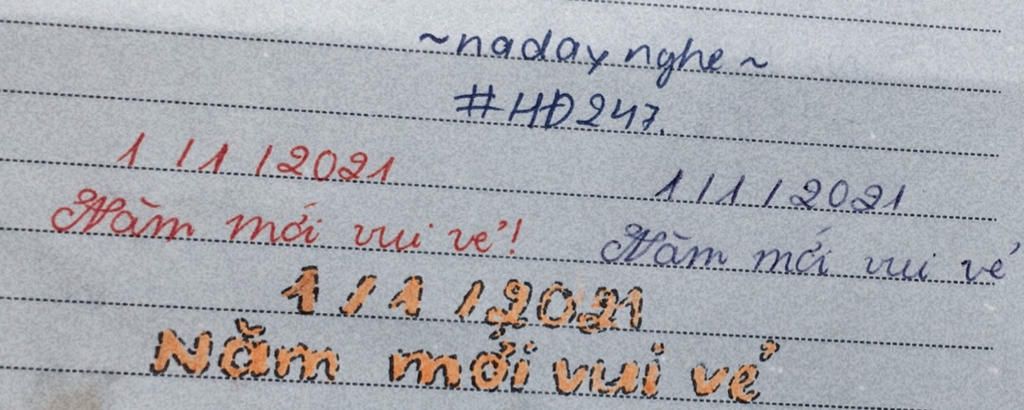 ~nadaynghe~
#HĐ247.
1/1/2021
Năm mới vui vẻ!
1/1/2021
Năm mới vui vẻ
1/1/2021
Năm mởi vui vẻ